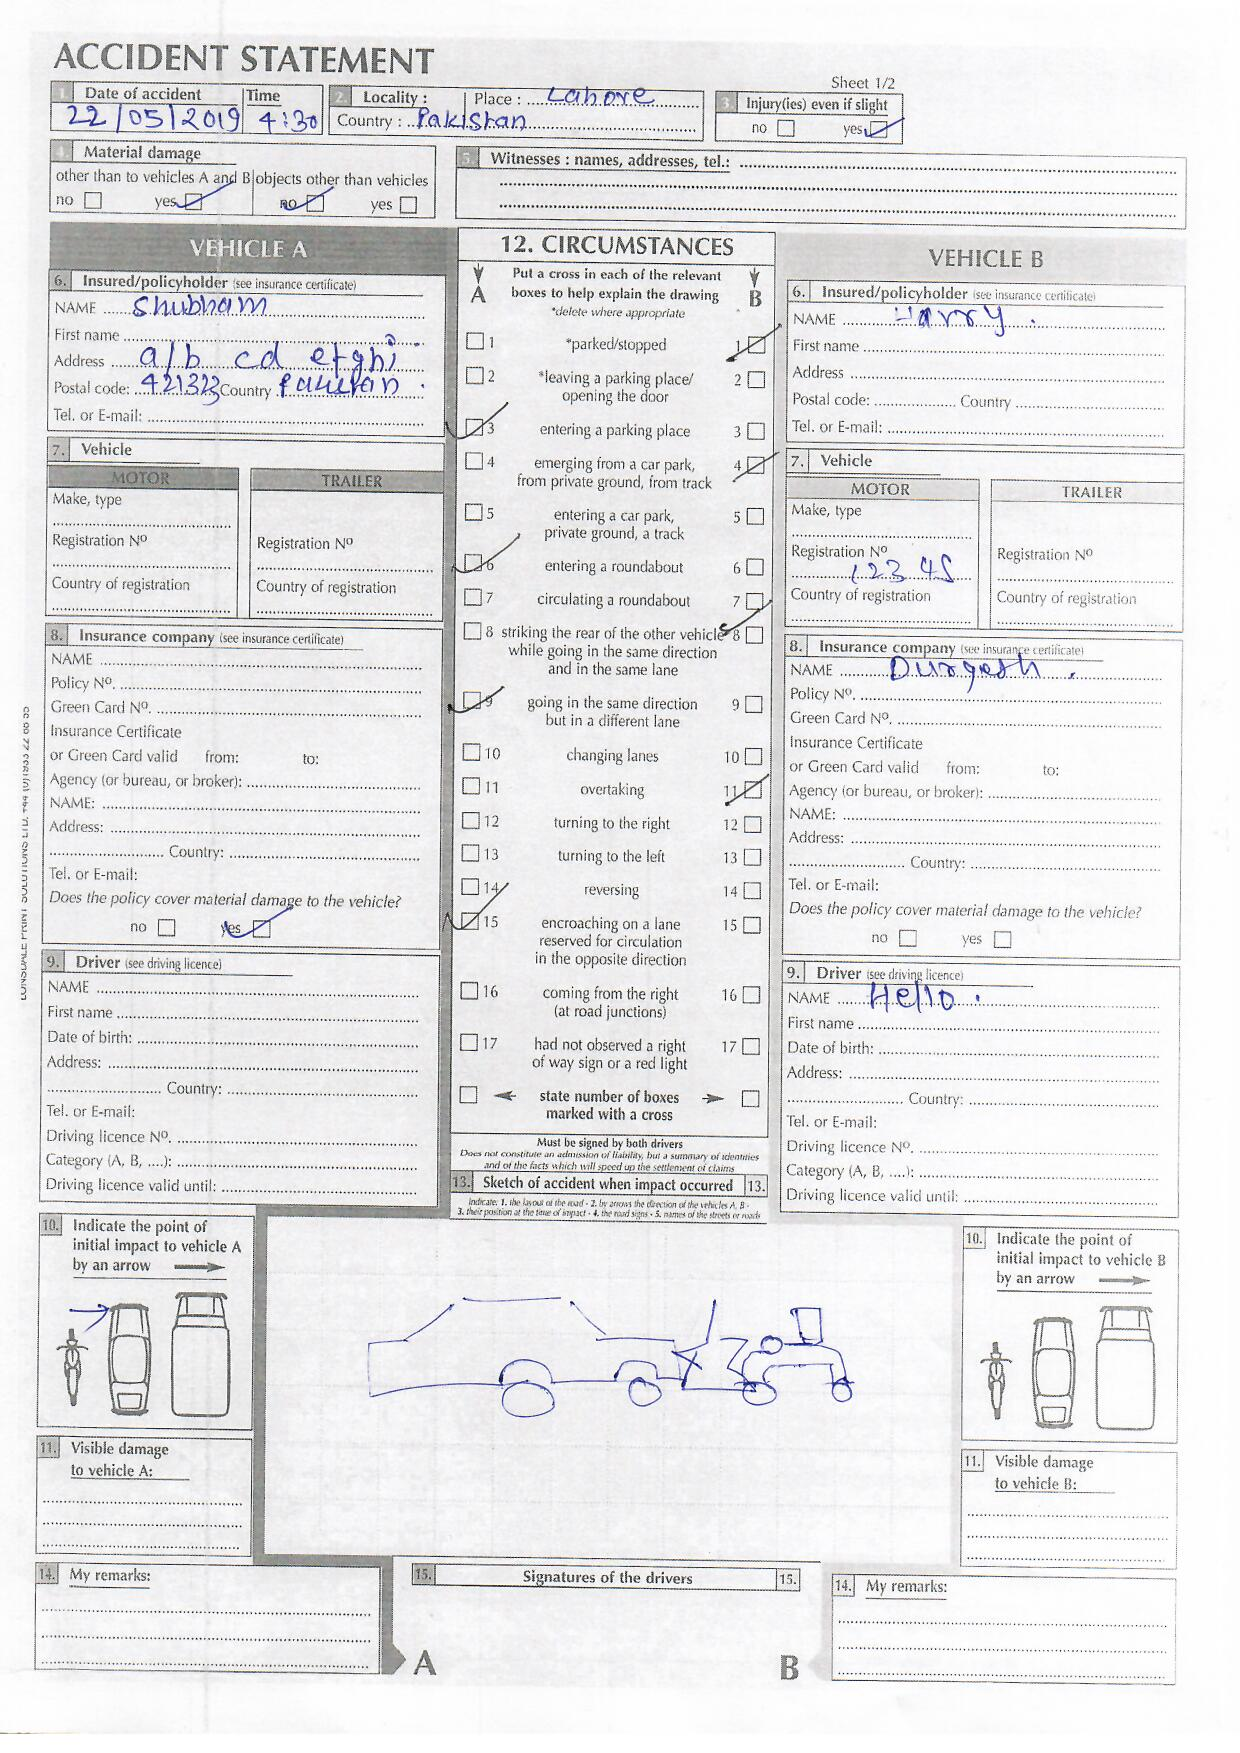 ACCIDENT STATEMENT
Sheet 1/2
1. Date of accident Time
22/05/2019 4:30
2. Locality : Place : Lahore
Country : Pakistan
3. Injury(ies) even if slight
no yes
4. Material damage
other than to vehicles A and B objects other than vehicles
no yes no yes
5. Witnesses : names, addresses, tel.:
VEHICLE A
6. Insured/policyholder (see insurance certificate)
NAME Shubham
First name
Address a/b cd efghi
Postal code: 421323 Country Pakistan
Tel. or E-mail:
7. Vehicle
MOTOR TRAILER
Make, type
Registration Nº Registration Nº
Country of registration Country of registration
8. Insurance company (see insurance certificate)
NAME
Policy Nº.
Green Card Nº.
Insurance Certificate
or Green Card valid from: to:
Agency (or bureau, or broker):
NAME:
Address:
Country:
Tel. or E-mail:
Does the policy cover material damage to the vehicle?
no yes
9. Driver (see driving licence)
NAME
First name
Date of birth:
Address:
Country:
Tel. or E-mail:
Driving licence Nº.
Category (A, B, ....):
Driving licence valid until:
12. CIRCUMSTANCES
A B
Put a cross in each of the relevant
boxes to help explain the drawing
*delete where appropriate
1 *parked/stopped 1
2 *leaving a parking place/ 2
opening the door
3 entering a parking place 3
4 emerging from a car park, 4
from private ground, from track
5 entering a car park, 5
private ground, a track
6 entering a roundabout 6
7 circulating a roundabout 7
8 striking the rear of the other vehicle 8
while going in the same direction
and in the same lane
9 going in the same direction 9
but in a different lane
10 changing lanes 10
11 overtaking 11
12 turning to the right 12
13 turning to the left 13
14 reversing 14
15 encroaching on a lane 15
reserved for circulation
in the opposite direction
16 coming from the right 16
(at road junctions)
17 had not observed a right 17
of way sign or a red light
state number of boxes
marked with a cross
Must be signed by both drivers
Does not constitute an admission of liability, but a summary of identities
and of the facts which will speed up the settlement of claims
13. Sketch of accident when impact occurred 13.
Indicate: 1. the layout of the road - 2. by arrows the direction of the vehicles A, B -
3. their position at the time of impact - 4. the road signs - 5. names of the streets or roads
VEHICLE B
6. Insured/policyholder (see insurance certificate)
NAME Harry .
First name
Address
Postal code: Country
Tel. or E-mail:
7. Vehicle
MOTOR TRAILER
Make, type
Registration Nº Registration Nº
12345
Country of registration Country of registration
8. Insurance company (see insurance certificate)
NAME Durgesh .
Policy Nº.
Green Card Nº.
Insurance Certificate
or Green Card valid from: to:
Agency (or bureau, or broker):
NAME:
Address:
Country:
Tel. or E-mail:
Does the policy cover material damage to the vehicle?
no yes
9. Driver (see driving licence)
NAME Hello .
First name
Date of birth:
Address:
Country:
Tel. or E-mail:
Driving licence Nº.
Category (A, B, ....):
Driving licence valid until:
10. Indicate the point of
initial impact to vehicle A
by an arrow
11. Visible damage
to vehicle A:
14. My remarks:
15. Signatures of the drivers 15.
A B
10. Indicate the point of
initial impact to vehicle B
by an arrow
11. Visible damage
to vehicle B:
14. My remarks: